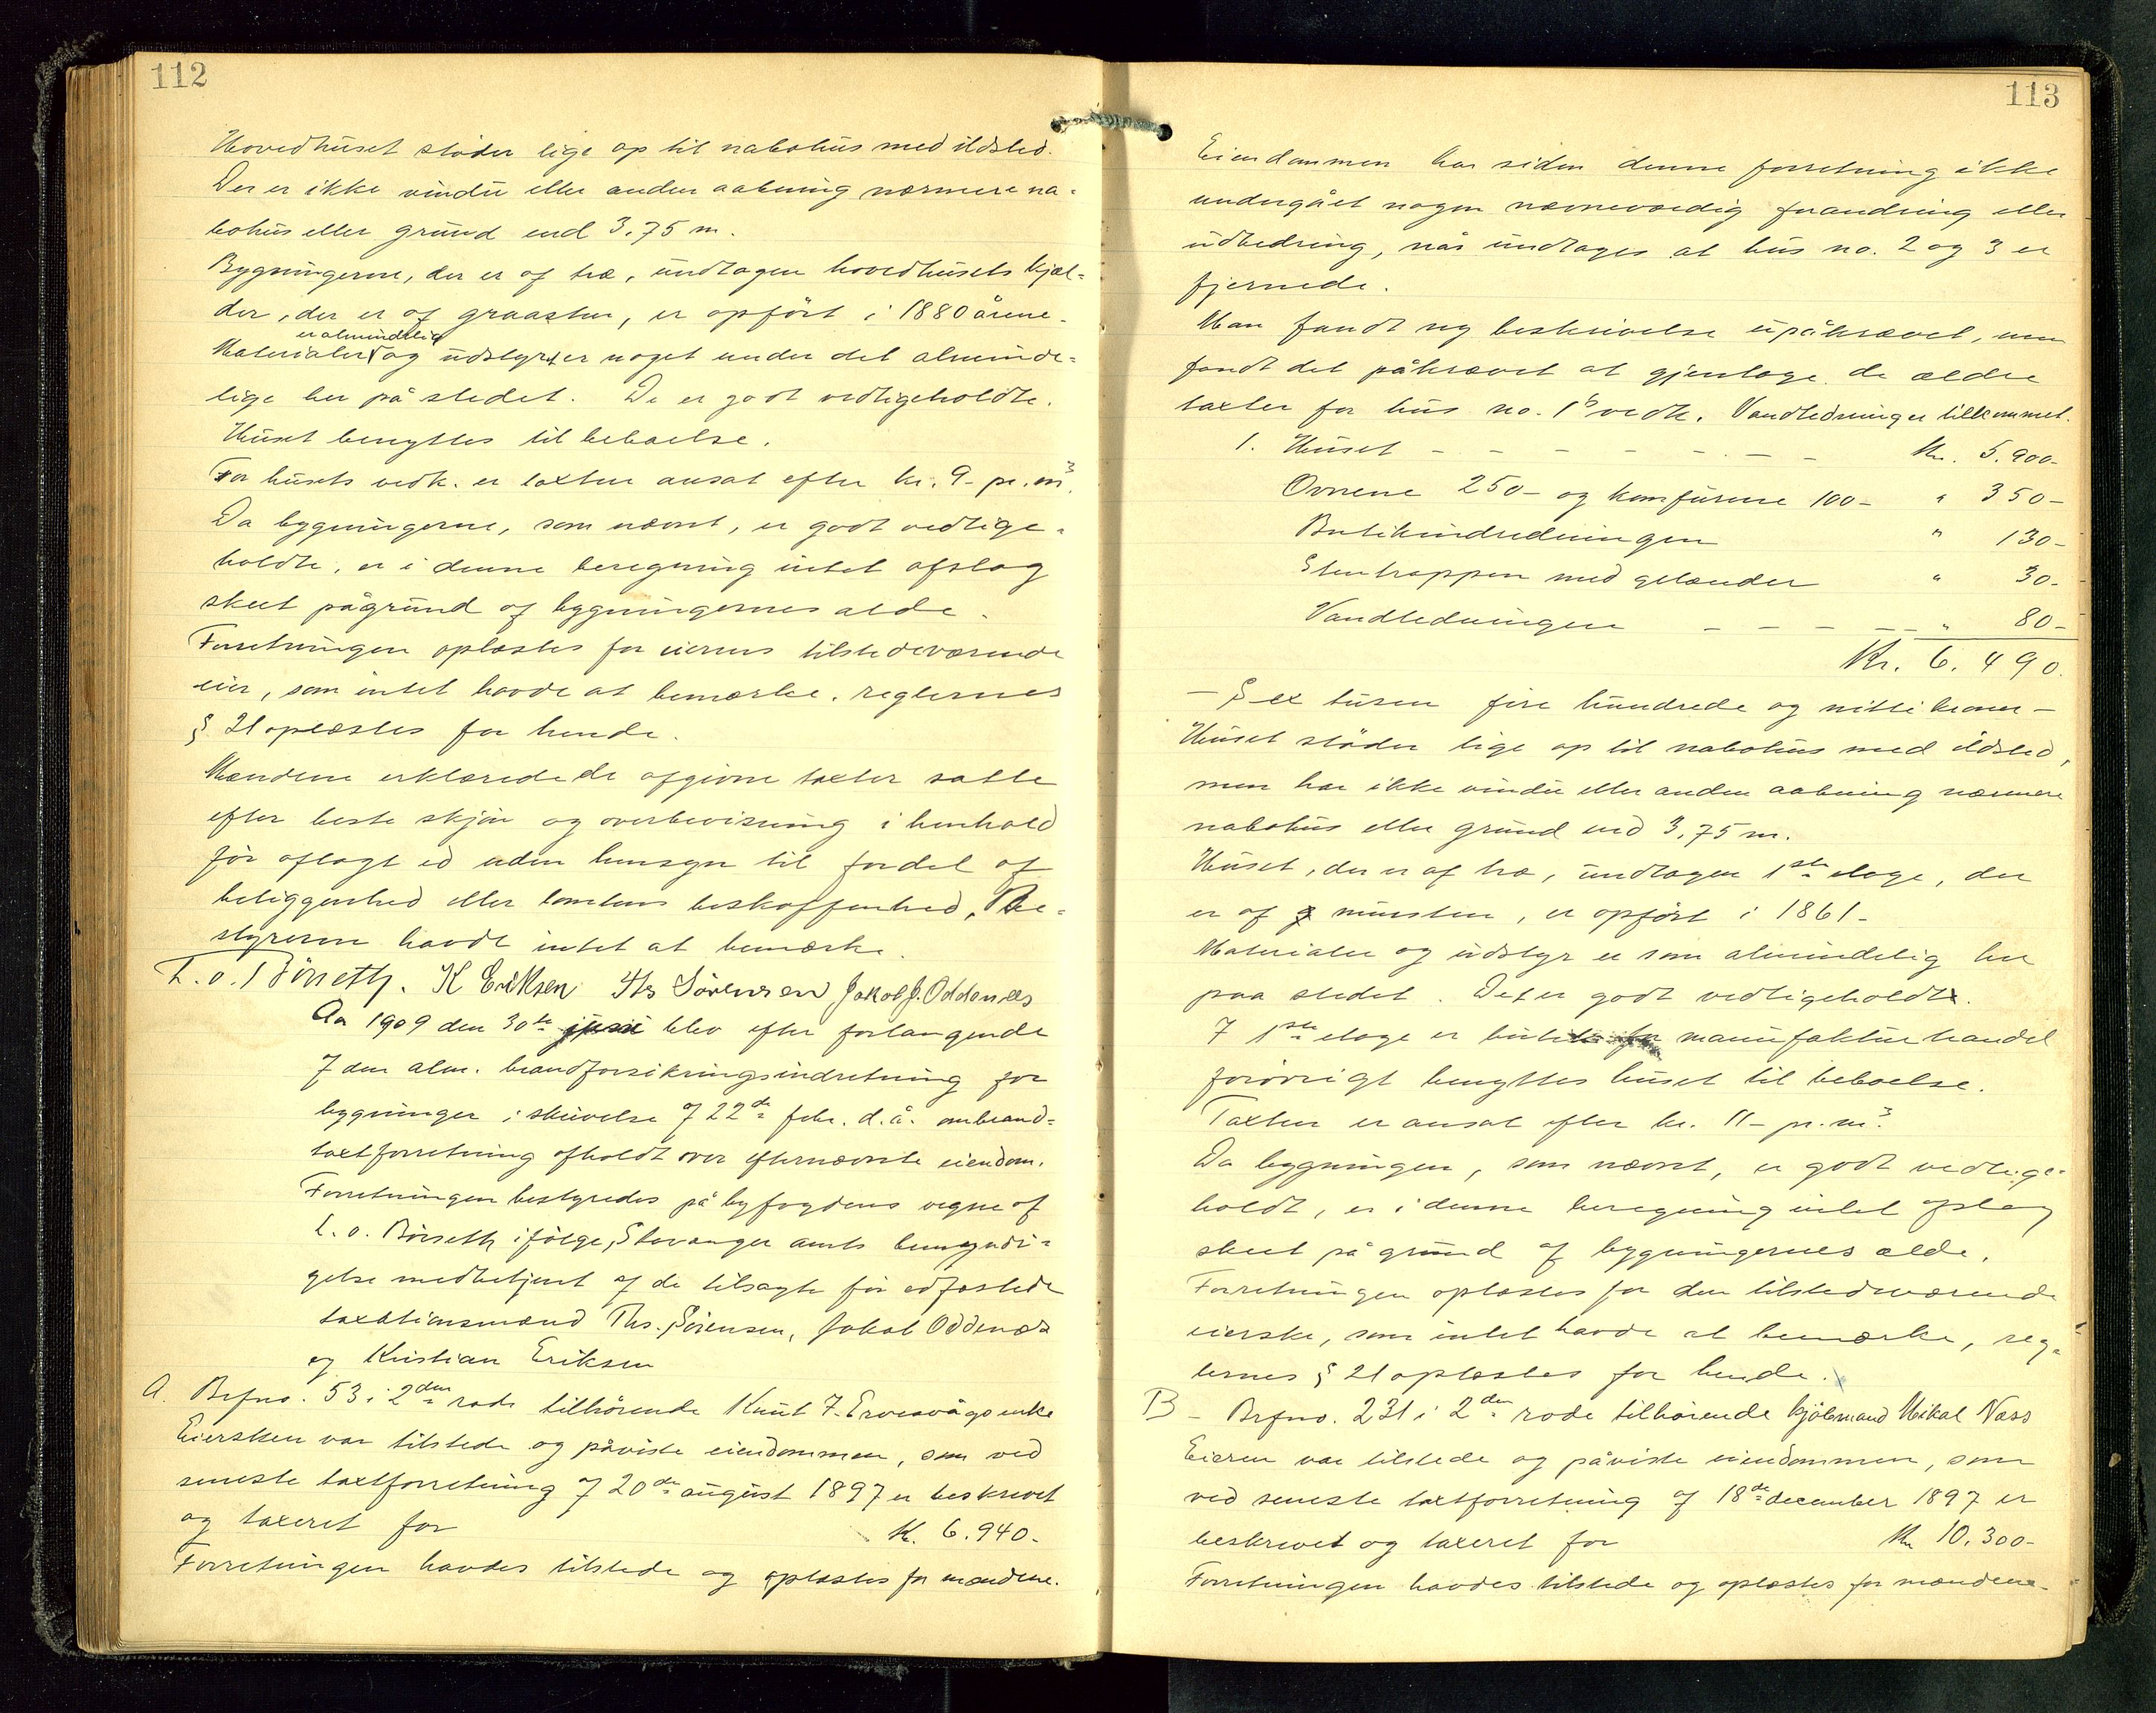 112
Hovedhuset støder lige op til nabohus med ildsted.
Der er ikke vindu eller anden aabning nærmere na-
bohus eller grund end 3,75 m.
Bygningerne, der er af træ, undtagen hovedhusets kjæl-
der, der er af graasten, er opført i 1880 årene.
er almindelig
Materialer og udstyr er noget under det alminde-
lige her på stedet. De er godt vedligeholdte.
Huset benyttes til beboelse.
For husets vedk. er taxten ansat efter kr. 9- pr. m³.
Da bygningerne, som nævnt, er godt vedlige-
holdte, er i denne beregning intet afslag
skeet pågrund af bygningernes alde.
Forretningen oplæstes for eierens tilstedeværende
eier, som intet havde at bemærke. reglernes
§ 21 oplæstes for hende.
Mændene erklærede de afgivne taxter satte
efter beste skjøn og overbevisning i henhold
før aflagt ed uden hensyn til fordel af
beliggenhed eller tomtens beskaffenhed. Be-
styreren havde intet at bemærke.
L. o. Börseth. K Eriksen Ths Sörensen Jakob J. Oddenæs
Aa 1909 den 30te juni blev efter forlangende
af den alm. brandforsikringsindretning for
bygninger i skrivelse af 22de febr. d.å. ombrand-
taxtforretning afholdt over efternævnte eiendom.
Forretningen bestyredes på byfogdens vegne af
L. o. Börseth ifølge Stavanger amts bemyndi-
gelse medbetjent af de tilsagte før edfæstede
taxationsmænd Ths. Sörensen, Jakob Oddenæs
og Kristian Eriksen
A. Brfno. 53 i 2den rode tilhörende Knut T. Ervesvågs enke
Eiersken var tilstede og påviste eiendommen, som ved
seneste taxtforretning af 20de august 1897 er beskrevet
og taxeret for K. 6.940.
Forretningen havdes tilstede og oplæstes for mændene.
113
Eiendommen har siden denne forretning ikke
undergået nogen nævneværdig forandring eller
udbedring, når undtages at hus no. 2 og 3 er
fjernede.
Man fandt ny beskrivelse upåkrævet, men
fandt det påkrævet at gjentage de ældre
taxter for hus no. 1 b vedk. Vandledninger tilkommet.
1. Huset - - - - - - - Kr. 5.900-
Ovnene 250- og komfurene 100- " 350-
Butikindredningen " 130-
Stentrappen med gelænder " 30-
Vandledningen - - - - " 80-
Kr. 6.490.
- Sex tusen fire hundrede og nitti kroner -
Huset støder lige op til nabohus med ildsted,
men har ikke vindu eller anden aabning nærmere
nabohus eller grund end 3,75 m.
Huset, der er af træ, undtagen 1ste etage, der
er af mursten, er opført i 1861-
Materialer og udstyr er som almindelig her
paa stedet. Det er godt vedligeholdt.
I 1ste etage er butik for manufakturhandel
forövrigt benyttes huset til beboelse.
Taxten er ansat efter kr. 11- pr. m³.
Da bygningen, som nævnt, er godt vedlige-
holdt, er i denne beregning intet afslag
skeet på grund af bygningernes ælde.
Forretningen oplæstes for den tilstedeværende
eierske, som intet havde at bemærke, reg-
lernes § 21 oplæstes for hende.
B - Brfno. 231 i 2den rode tilhørende kjøbmand Mikal Næss
Eieren var tilstede og påviste eiendommen, som
ved seneste taxtforretning af 18de december 1897 er
beskrevet og taxeret for Kr 10.300-
Forretningen havdes tilstede og oplæstes for mændene.